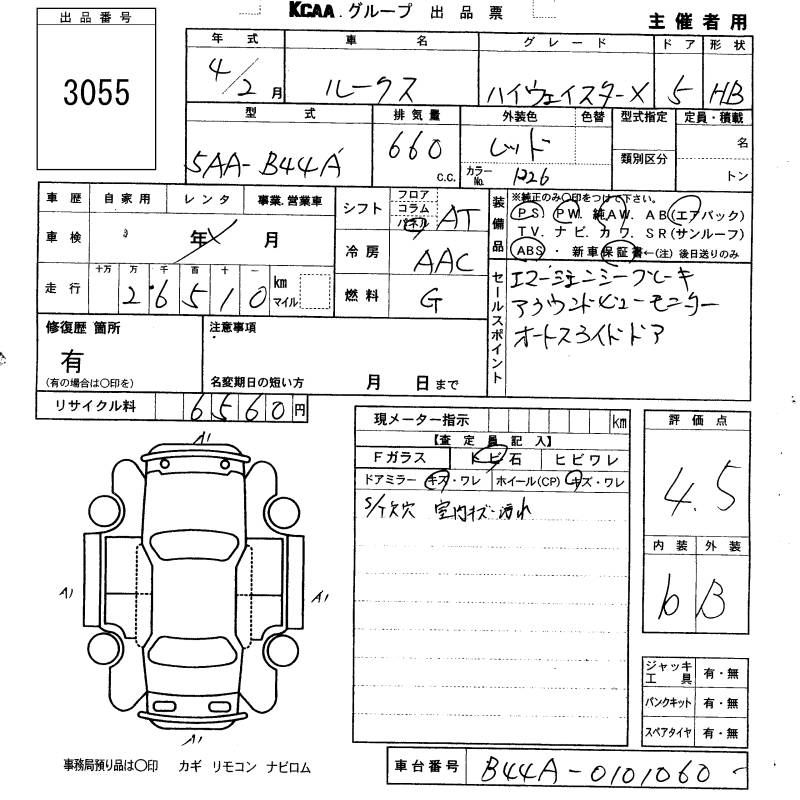 KCAA.グループ 出品票
主催者用
出品番号
3055
年式 車名 グレード ドア 形状
4/2月 ルークス ハイウェイスターX 5 HB
型式 排気量 外装色 色替 型式指定 定員・積載
5AA-B44A 660 c.c. レッド 類別区分 名
カラーNo. トン
車歴 自家用 レンタ 事業.営業車
車検 年 月
シフト フロア コラム パネル AT
冷房 AAC
走行 十万 万 千 百 十 一
2 6 5 1 0 km マイル
燃料 G
装備品 ※純正のみ〇印をつけて下さい。
PS. PW. 純AW. AB(エアバック)
TV. ナビ. カワ. SR(サンルーフ)
ABS ・ 新車保証書←(注)後日送りのみ
セールスポイント
エマージェンシーブレーキ
アラウンドビューモニター
オートスライドドア
修復歴 箇所
有
(有の場合は〇印を)
注意事項
名変期日の短い方 月 日まで
リサイクル料 6560円
現メーター指示 km
【査定員記入】
Fガラス トビ石 ヒビワレ
ドアミラー キズ・ワレ ホイール(CP) キズ・ワレ
室内キズ・汚れ
評価点
4.5
内装 外装
b B
A1
A1
A1
A1
ジャッキ工具 有・無
パンクキット 有・無
スペアタイヤ 有・無
事務局預り品は〇印 カギ リモコン ナビロム
車台番号 B44A-0101060